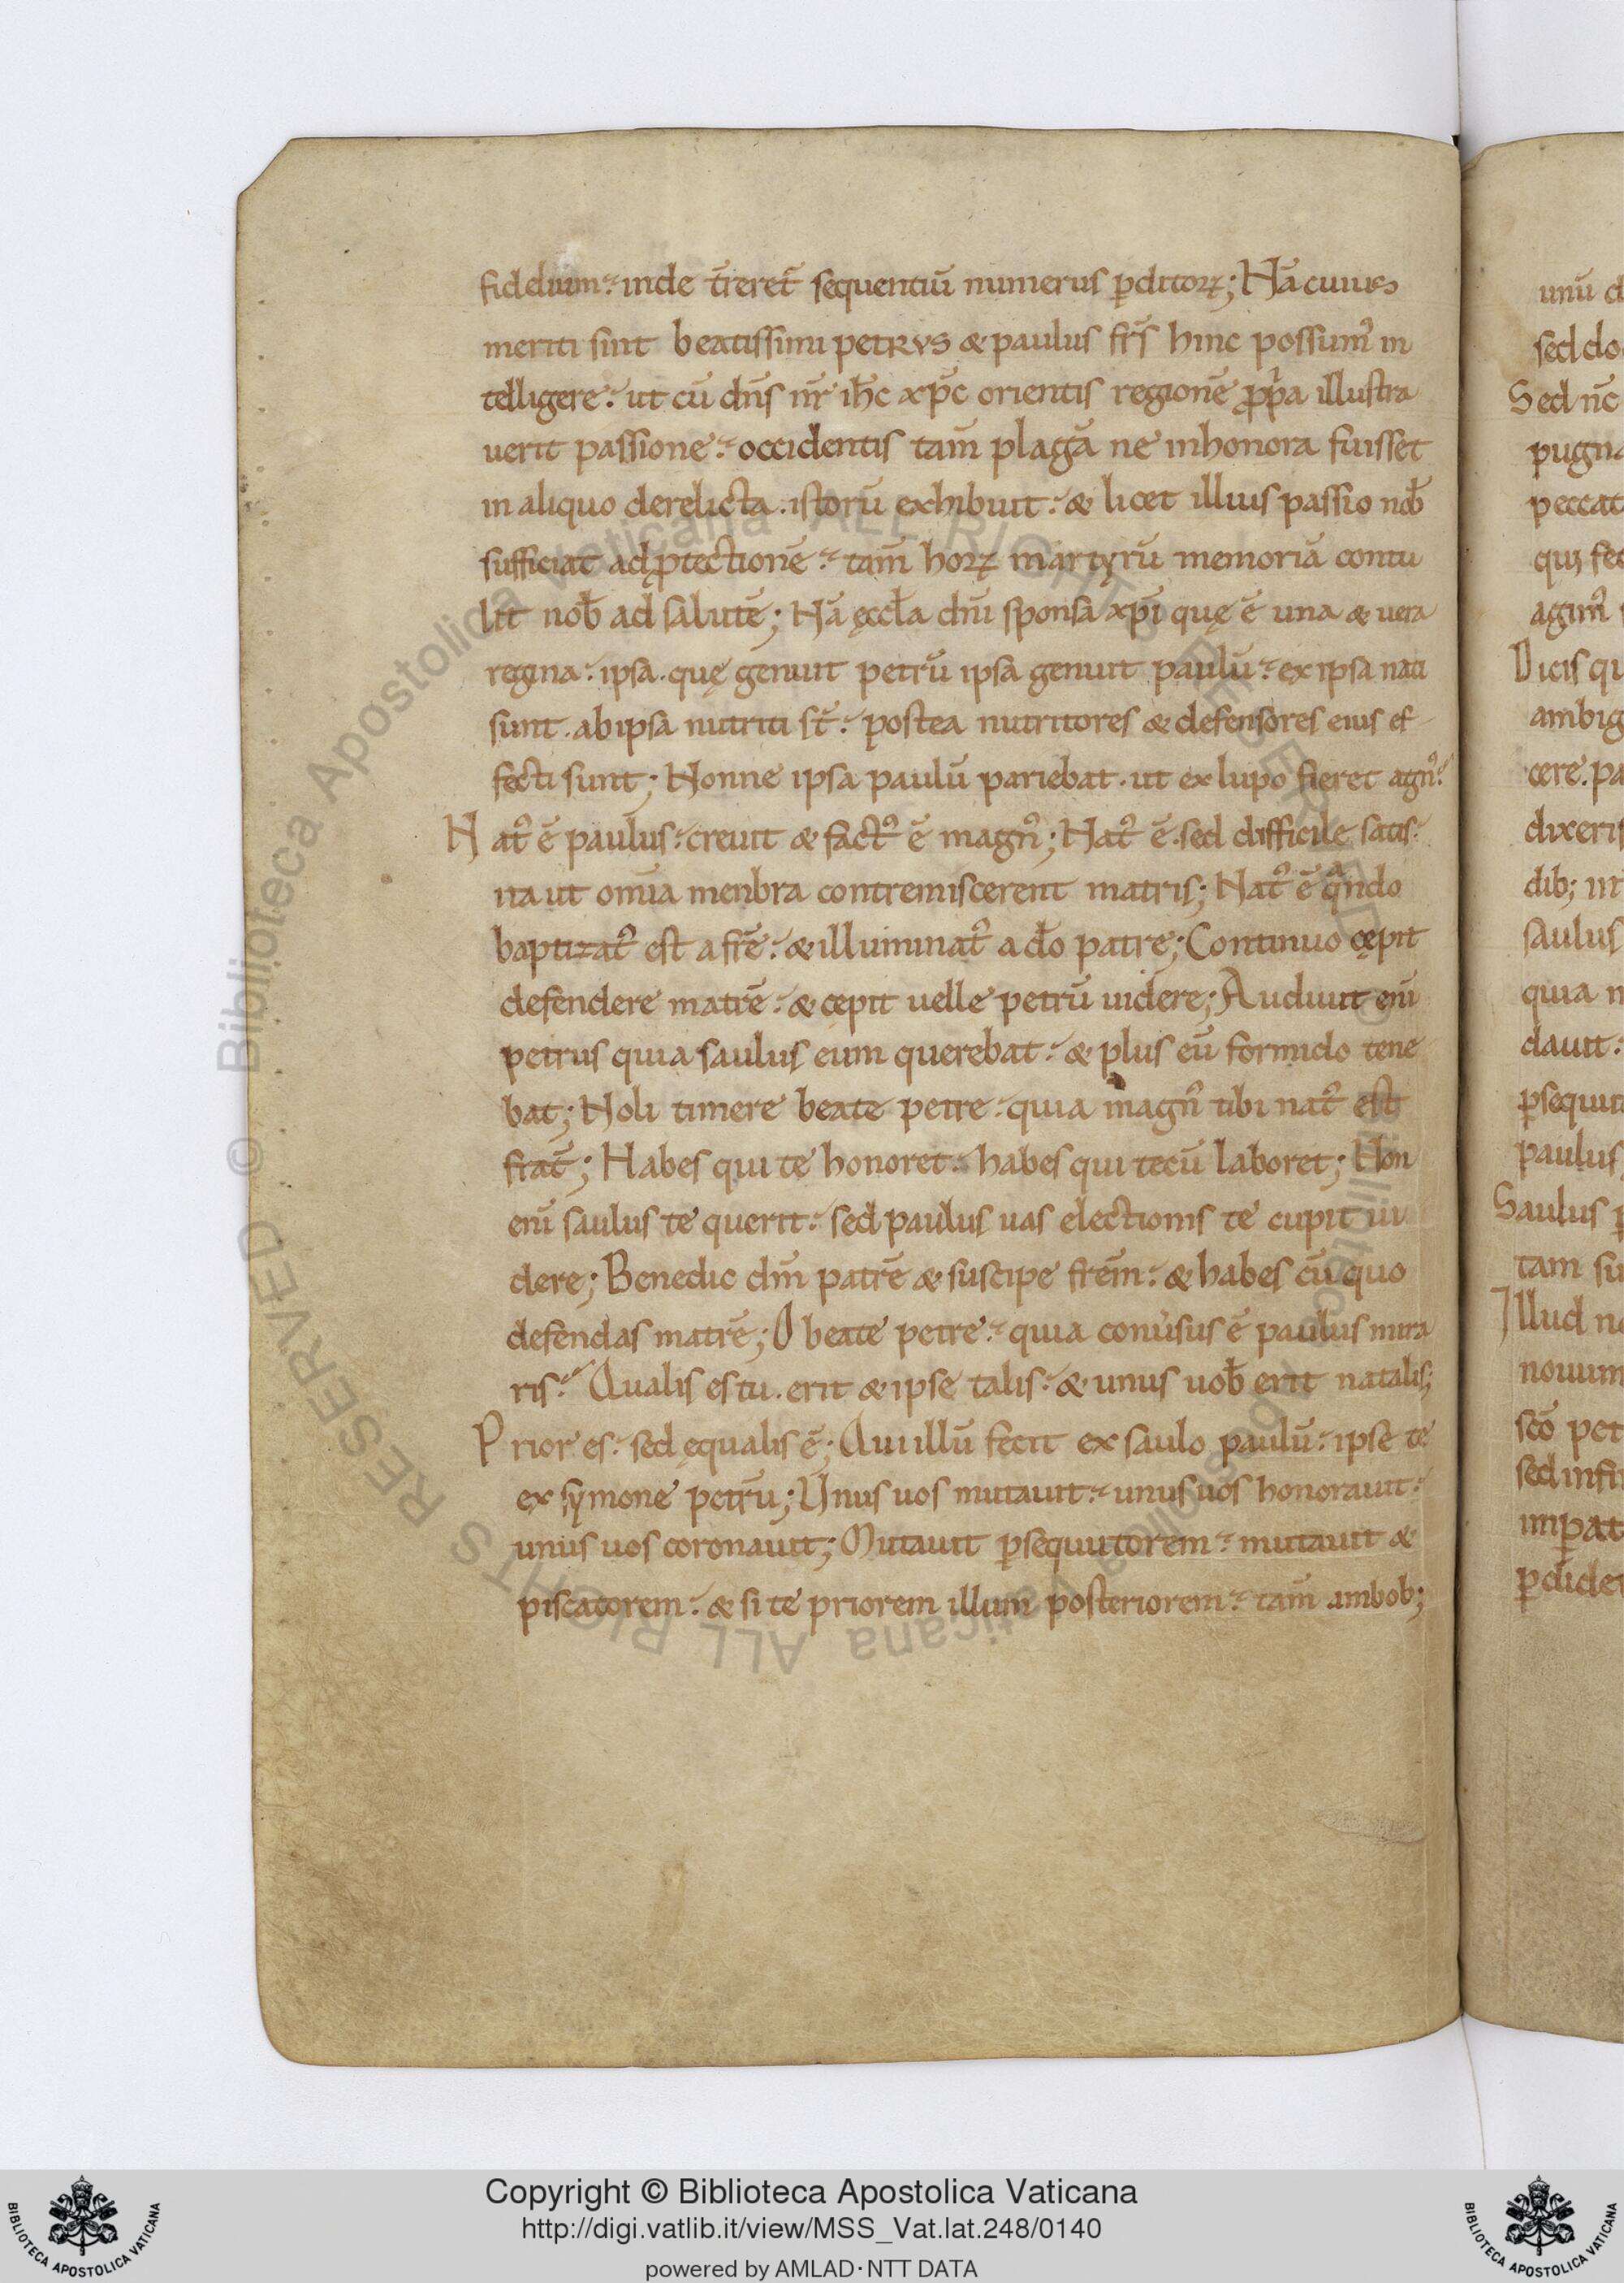 fidelium. inde t̄reret̄ sequentiū numerus ꝑditoꝝ; Nā cuius
meriti sint beatissimi petrus & paulus fr̄s hinc possumꝰ in
telligere. ut cū dn̄s nr̄ ih̄c xp̄c orientis regionē ꝓpͥa illustra
uerit passione. occidentis tam̄ plagā ne inhonora fuisset
in aliquo derelicta. istorū exhibuit. & licet illius passio nob̄
sufficiat ad ꝓtectionē. tam̄ hoꝝ martyrū memoriā contu
lit nob̄ ad salutē; Nā ęccl̄a dn̄i sponsa xp̄i quę ē una & uera
regina. ipsa. quę genuit petrū ipsa genuit paulū. ex ipsa nati
sunt. ab ipsa nutriti st̄. postea nutritores & defensores eius ef
fecti sunt; Nonne ipsa paulū pariebat. ut ex lupo fieret agnꝰ.
Natꝰ ē paulus. creuit & factꝰ ē magnꝰ; Natꝰ ē. sed difficile satis.
ita ut om̄ia menbra contremiscerent matris; Natꝰ ē qͣndo
baptizatꝰ est a fr̄e. & illuminatꝰ a do̅ patre; Continuo cępit
defendere matrē. & cępit uelle petrū uidere; Audiuit eni̅
petrus quia saulus eum querebat. & plus eū formido tene
bat; Noli timere beate petre. quia magnꝰ tibi natꝰ est
frat̄; Habes qui te honoret. habes qui tecū laboret; Non
eni̅ saulus te querit. sed paulus uas electionis te cupit ui
dere; Benedic dn̄m patrē & suscipe fr̄em. & habes cū quo
defendas matrē; O beate petre. quia conu̅sus ē paulus mira
ris. Qualis es tu. erit & ipse talis. & unus uob̄ erit natalis;
Prior es. sed ęqualis ē; Qui illū fecit ex saulo paulū. ipse te
ex symone petrū; Unus uos mutauit. unus uos honorauit.
unus uos coronauit; Mutauit ꝑsequutorem. mutauit &
piscatorem. & si te priorem illum posteriorem. tam̄ ambob;
unū
sed do
Sed nc̄
pugna
peccat
qui fec
agimꝰ
Dicis qu
ambig
cere. pa
dixeris
dib; in
saulus
quia n
dauit.
ꝑsequut
paulus
Saulus
tam su
Illud n
nouum
sc̄o pet
sed infi
imꝑat
ꝑdider
Copyright © Biblioteca Apostolica Vaticana
http://digi.vatlib.it/view/MSS_Vat.lat.248/0140
powered by AMLAD·NTT DATA
BIBLIOTECA APOSTOLICA VATICANA
BIBLIOTECA APOSTOLICA VATICANA
© Biblioteca Apostolica Vaticana ALL RIGHTS RESERVED
© Biblioteca Apostolica Vaticana ALL RIGHTS RESERVED